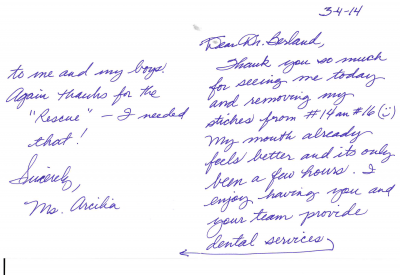 3-4-14
Dear Dr. Berland,
Thank you so much
for seeing me today
and removing my
stiches from #14 an #16 (☺)
My mouth already
feels better and its only
been a few hours. I
enjoy having you and
your team provide
dental services
to me and my boys!
Again thanks for the
"Rescue" – I needed
that!
Sincerely,
Ms. Arcilia